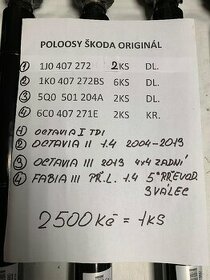 POLOOSY ŠKODA ORIGINÁL
① 1J0 407 272 2KS DL.
② 1K0 407 272BS 6KS DL.
③ 5Q0 501 204A 2KS DL.
④ 6C0 407 271E 2KS KR.
① OCTAVIA I TDI
② OCTAVIA II 1.4 2004-2013
③ OCTAVIA III 2013 4x4 ZADNÍ
④ FABIA III PŘ.L. 1.4 5°PŘEVOD.
3VÁLEC
2500Kč = 1KS